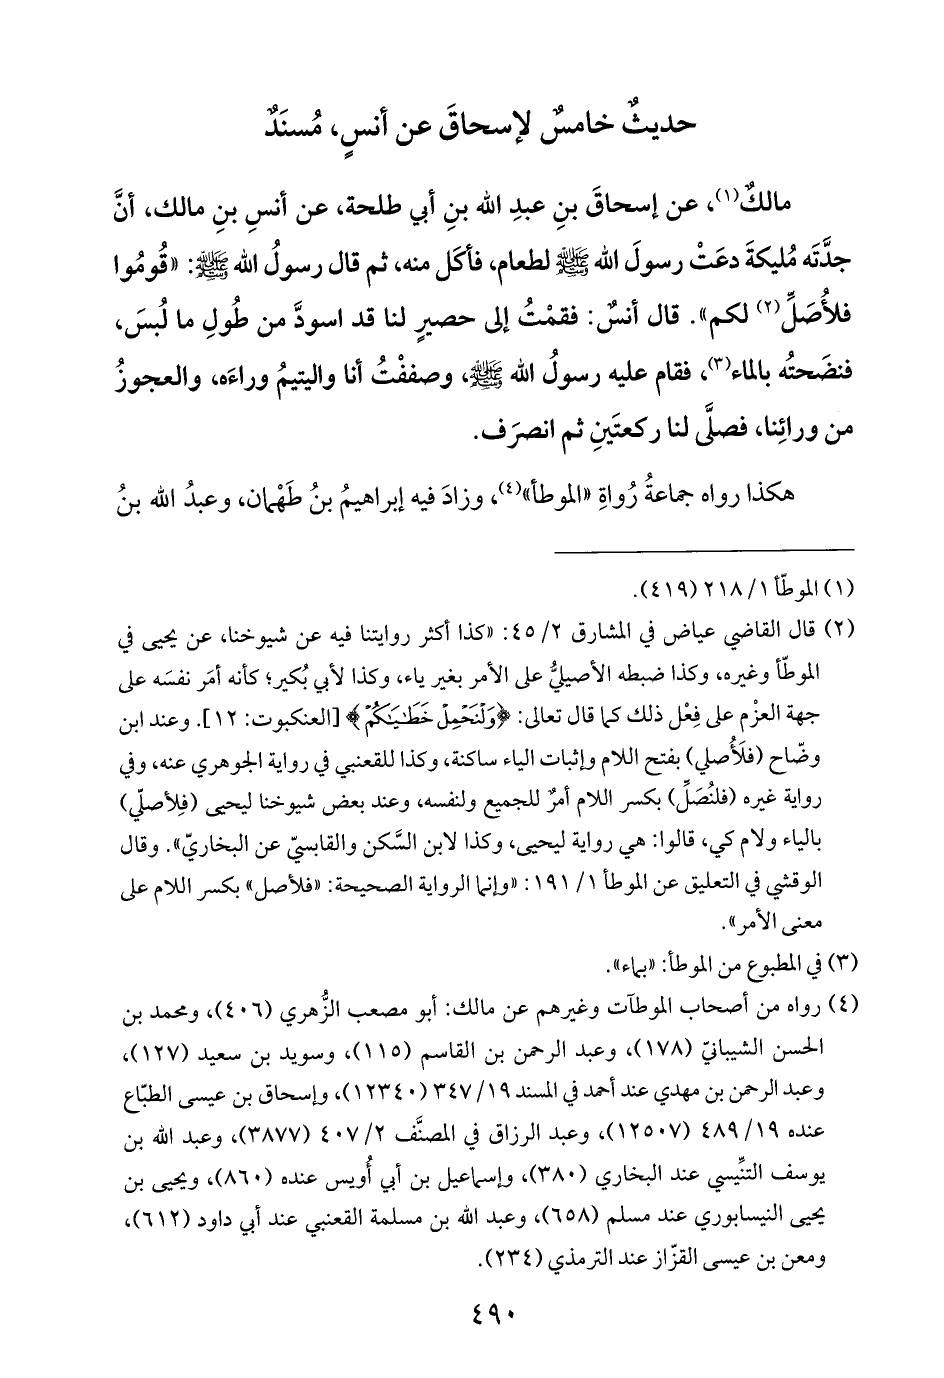 حديثٌ خامسٌ لإسحاقَ عن أنسٍ، مُسنَدٌ
مالكٌ(١)، عن إسحاقَ بنِ عبدِ الله بنِ أبي طلحة، عن أنسِ بنِ مالك، أنَّ
جدَّتَه مُليكةَ دعَتْ رسولَ الله ﷺ لطعام، فأكَل منه، ثم قال رسولُ الله ﷺ: «قُومُوا
فلأُصَلِّ(٢) لكم». قال أنسٌ: فقمْتُ إلى حصيرٍ لنا قد اسودَّ من طُولِ ما لُبسَ،
فنضَحتُه بالماء(٣)، فقام عليه رسولُ الله ﷺ، وصففْتُ أنا واليتيمُ وراءَه، والعجوزُ
من ورائِنا، فصلَّى لنا ركعتَينِ ثم انصرَف.
هكذا رواه جماعةُ رُواةِ «الموطأ»(٤)، وزادَ فيه إبراهيمُ بنُ طَهْمان، وعبدُ الله بنُ
(١) الموطّأ ١/ ٢١٨ (٤١٩).
(٢) قال القاضي عياض في المشارق ٢/ ٤٥: «كذا أكثر روايتنا فيه عن شيوخنا، عن يحيى في
الموطّأ وغيره، وكذا ضبطه الأصيليُّ على الأمر بغير ياء، وكذا لأبي بُكير؛ كأنه أمَر نفسَه على
جهة العزْم على فِعْل ذلك كما قال تعالى: ﴿وَلْنَحْمِلْ خَطَـٰيَـٰكُمْ﴾ [العنكبوت: ١٢]. وعند ابن
وضّاح (فلَأُصلي) بفتح اللام وإثبات الياء ساكنة، وكذا للقعنبي في رواية الجوهري عنه، وفي
رواية غيره (فلنُصَلِّ) بكسر اللام أمرٌ للجميع ولنفسه، وعند بعض شيوخنا ليحيى (فلِأصلّي)
بالياء ولام كي، قالوا: هي رواية ليحيى، وكذا لابن السَّكن والقابسيّ عن البخاريّ». وقال
الوقشي في التعليق عن الموطأ ١/ ١٩١: «وإنما الرواية الصحيحة: «فلأصل» بكسر اللام على
معنى الأمر».
(٣) في المطبوع من الموطأ: «بماء».
(٤) رواه من أصحاب الموطآت وغيرهم عن مالك: أبو مصعب الزُّهري (٤٠٦)، ومحمد بن
الحسن الشيبانيّ (١٧٨)، وعبد الرحمن بن القاسم (١١٥)، وسويد بن سعيد (١٢٧)،
وعبد الرحمن بن مهدي عند أحمد في المسند ١٩/ ٣٤٧ (١٢٣٤٠)، وإسحاق بن عيسى الطبّاع
عنده ١٩/ ٤٨٩ (١٢٥٠٧)، وعبد الرزاق في المصنَّف ٢/ ٤٠٧ (٣٨٧٧)، وعبد الله بن
يوسف التنِّيسي عند البخاري (٣٨٠)، وإسماعيل بن أبي أُويس عنده (٨٦٠)، ويحيى بن
يحيى النيسابوري عند مسلم (٦٥٨)، وعبد الله بن مسلمة القعنبي عند أبي داود (٦١٢)،
ومعن بن عيسى القزّاز عند الترمذي (٢٣٤).
٤٩٠